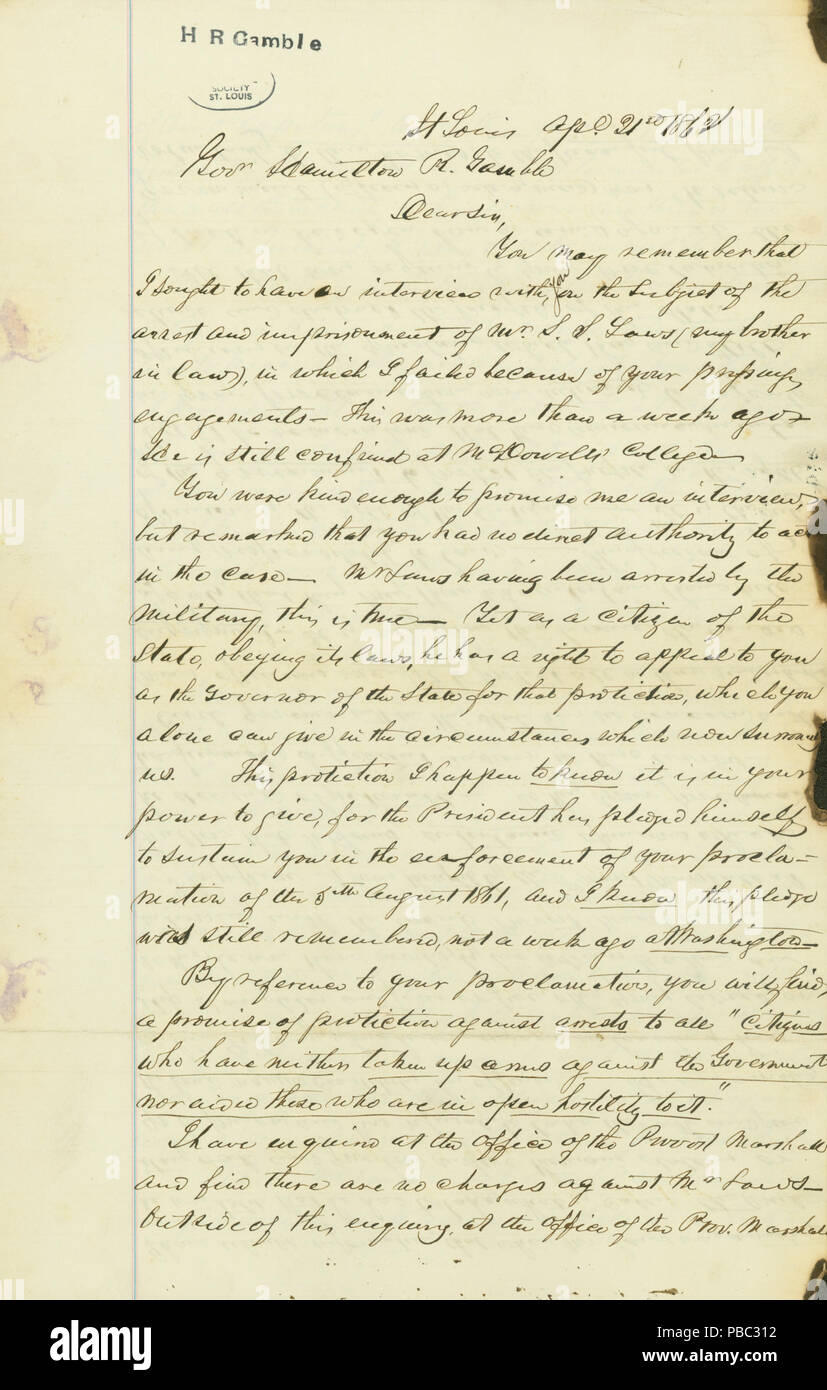 H R Gamble
SOCIETY
ST. LOUIS
St Louis Apl. 21st 1862
Govr Hamilton R. Gamble
Dear Sir,
You may remember that
I sought to have an interview with you on the subject of the
arrest and imprisonment of Mr. S. S. Laws (my brother
in law), in which I failed because of your pressing
engagements — This was more than a week ago &
He is still confined at McDowells' College
You were kind enough to promise me an interview,
but remarked that you had no direct authority to ac
in the case — Mr Laws having been arrested by the
military, this is true — Yet as a citizen of the
State, obeying its laws, he has a right to appeal to you
as the Governor of the State for that protection, which you
alone can give in the circumstances which now surround
us. This protection I happen to know it is in your
power to give, for the President has pledged himself
to sustain you in the enforcement of your procla=
mation of the 5th August 1861, and I know this pledge
was still remembered, not a week ago at Washington —
By reference to your proclamation, you will find,
a promise of protection against arrests to all "citizens
who have neither taken up arms against the Government
nor aided those who are in open hostility to it."
I have enquired at the office of the Provost Marshall
and find there are no charges against Mr Laws —
Outside of this enquiry, at the office of the Prov. Marshall
alamy
alamy
Image ID: PBC312
www.alamy.com